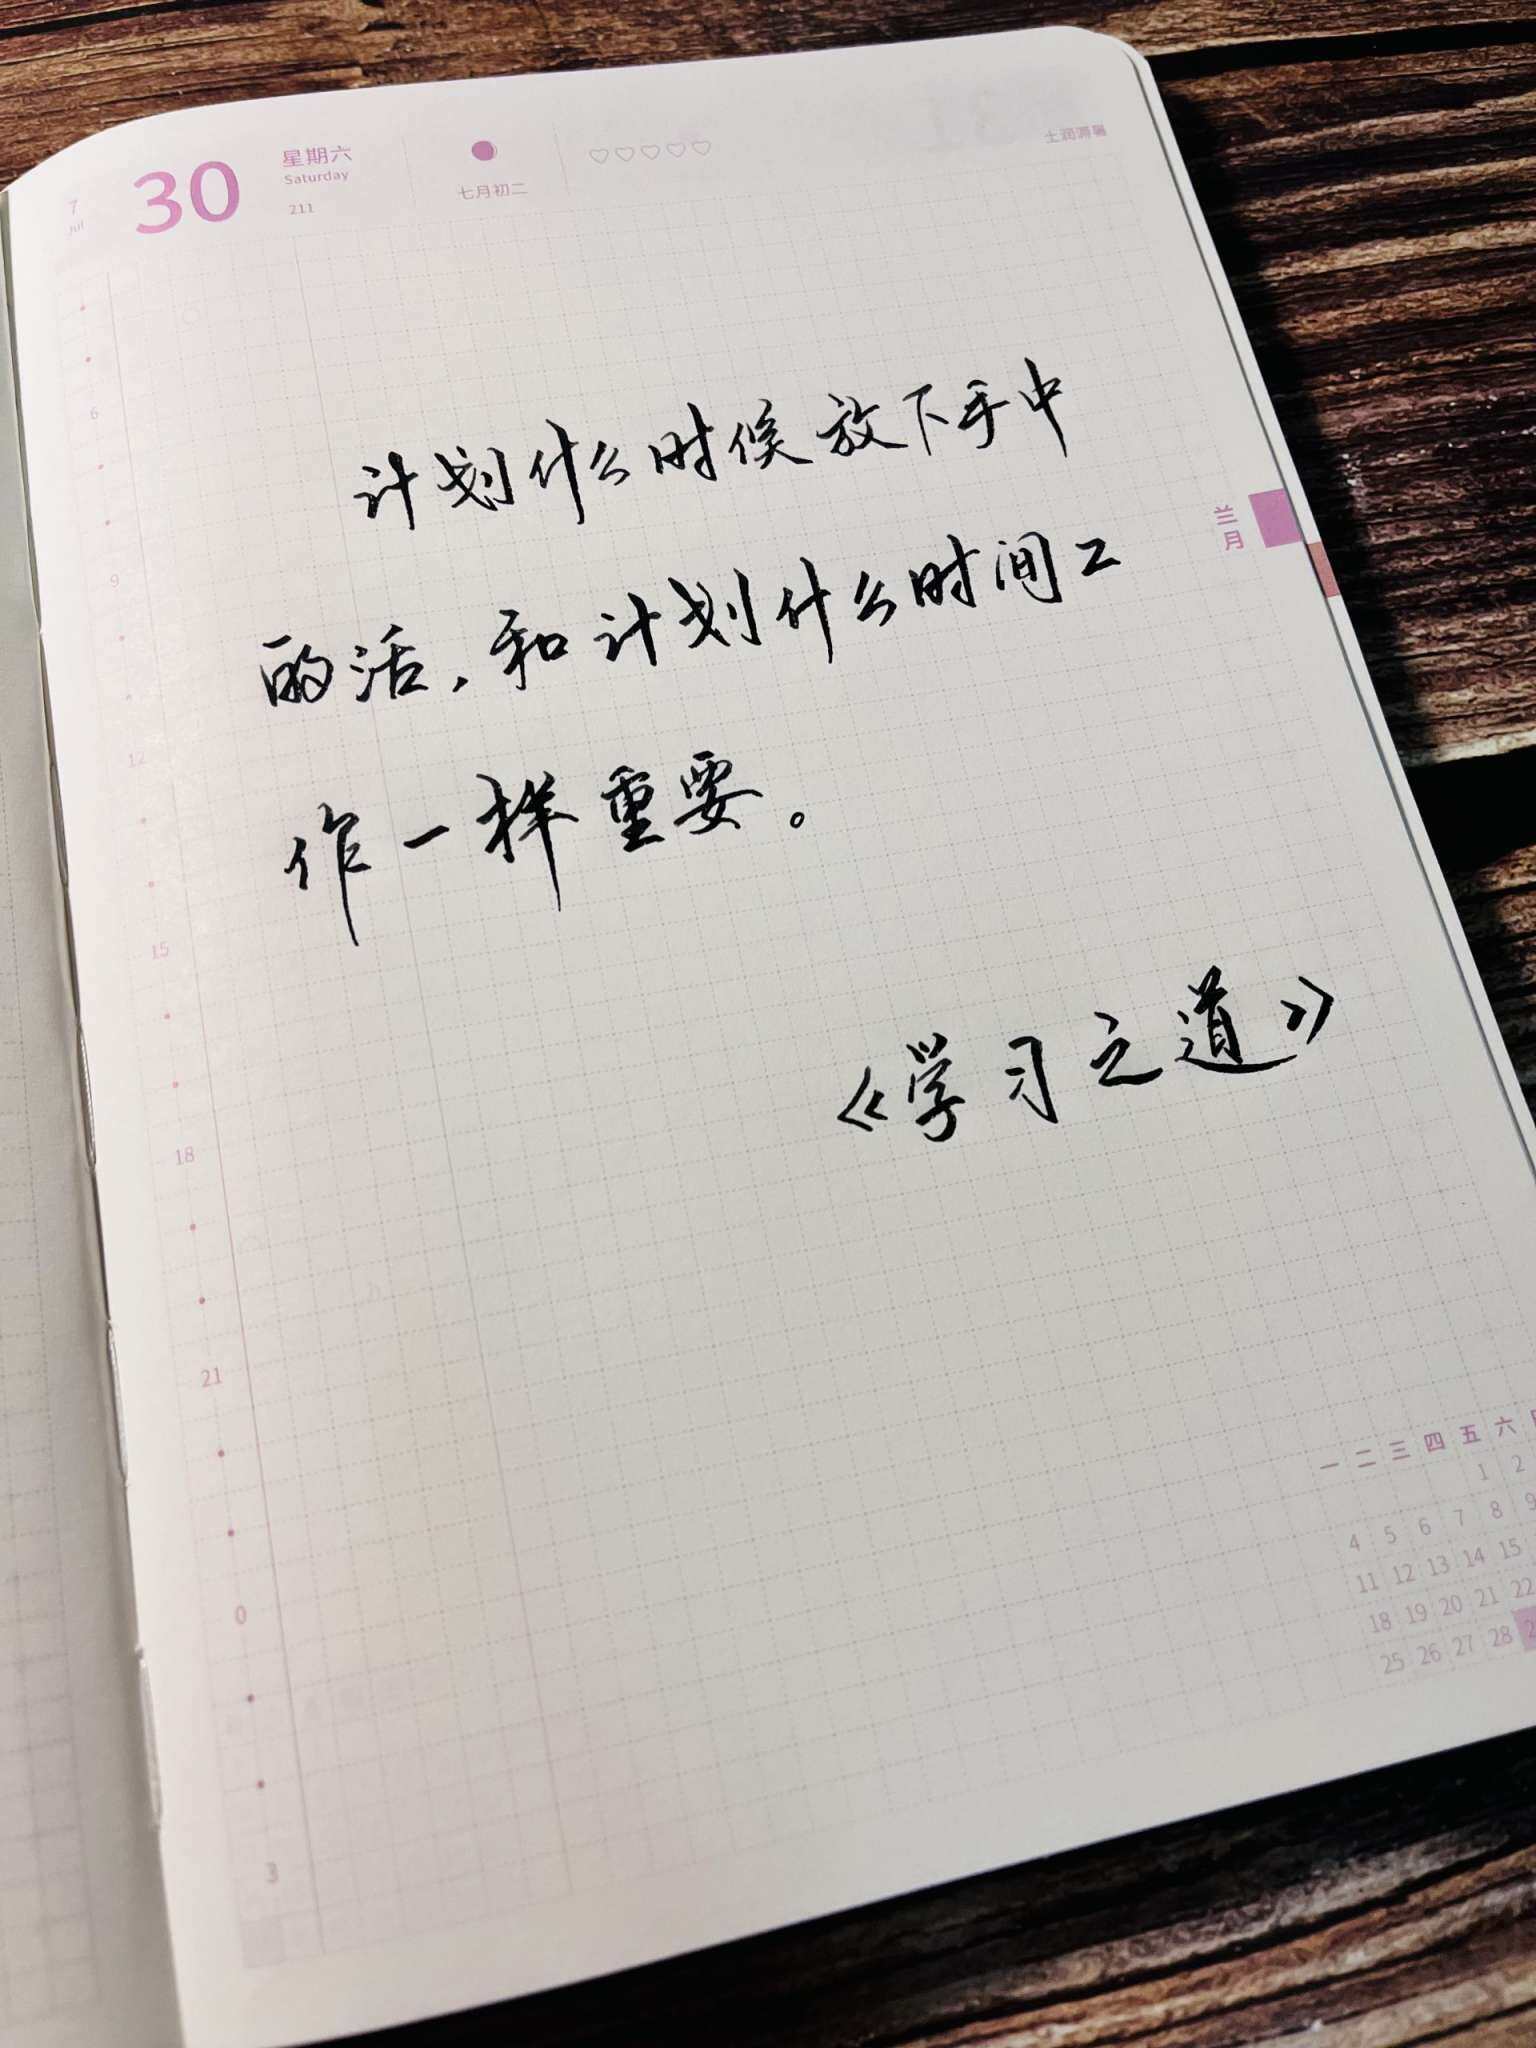 7
Jul
30
星期六
Saturday
211
七月初二
土润溽暑
兰月
计划什么时候放下手中
的活，和计划什么时间工
作一样重要。
《学习之道》
6
9
12
15
18
21
0
3
一 二 三 四 五 六
1 2
4 5 6 7 8 9
11 12 13 14 15
18 19 20 21 22
25 26 27 28